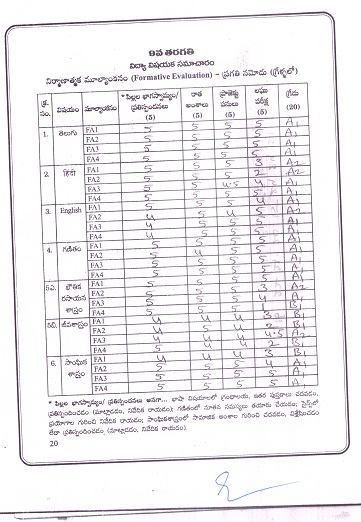 9వ తరగతి
విద్యా విషయక సమాచారం
నిర్మాణాత్మక మూల్యాంకనం (Formative Evaluation) – ప్రగతి నమోదు (గ్రేడ్లలో)
క్ర. సం. విషయం మూల్యాంకనం * పిల్లల భాగస్వామ్యం/ ప్రతిస్పందనలు (5) రాత అంశాలు (5) ప్రాజెక్టు పనులు (5) లఘు పరీక్ష (5) గ్రేడు (20)
1. తెలుగు FA1 5 5 5 5 A1
FA2 5 5 5 5 A1
FA3 5 5 5 5 A1
FA4 5 5 5 5 A1
2. హిందీ FA1 5 5 5 3 A2
FA2 5 5 5 2 A2
FA3 5 5 4.5 4 A1
FA4 5 5 5 5 A1
3. English FA1 5 5 5 4 A1
FA2 4 5 4 5
FA3 4 5 5 5 A1
FA4 5 5 5 5 A1
4. గణితం FA1 5 5 5 5 A1
FA2 5 5 5 5 A1
FA3 5 5 5 5 A1
FA4 5 5 5 5 A1
5ఎ. భౌతిక రసాయన శాస్త్రం FA1 5 5 5
FA2 5 5 5 3 A2
FA3 5 5 5 4 A1
FA4 5 5 5 1 B1
5బి. జీవశాస్త్రం FA1 4 4 4 3
FA2 4 5 4 2 B1
FA3 4 4 4 4.5 A2
FA4 5 4 4 2 B1
6. సాంఘిక శాస్త్రం FA1 4 4 4 3 B1
FA2 5 5 5 4 A1
FA3 5 5 5 5 A1
FA4 5 5 5 5 A1
* పిల్లల భాగస్వామ్యం/ ప్రతిస్పందనలు అనగా... భాషా విషయాలలో గ్రంథాలయ, ఇతర పుస్తకాలు చదవడం,
ప్రతిస్పందించడం (మాట్లాడడం, నివేదిక రాయడం); గణితంలో నూతన సమస్యలు తయారు చేయడం; సైన్స్‌లో
ప్రయోగాల గురించి నివేదిక రాయడం; సాంఘికశాస్త్రంలో సామాజిక అంశాల గురించి చదవడం, విశ్లేషించడం
లేదా ప్రతిస్పందించడం (మాట్లాడడం, నివేదిక రాయడం).
20